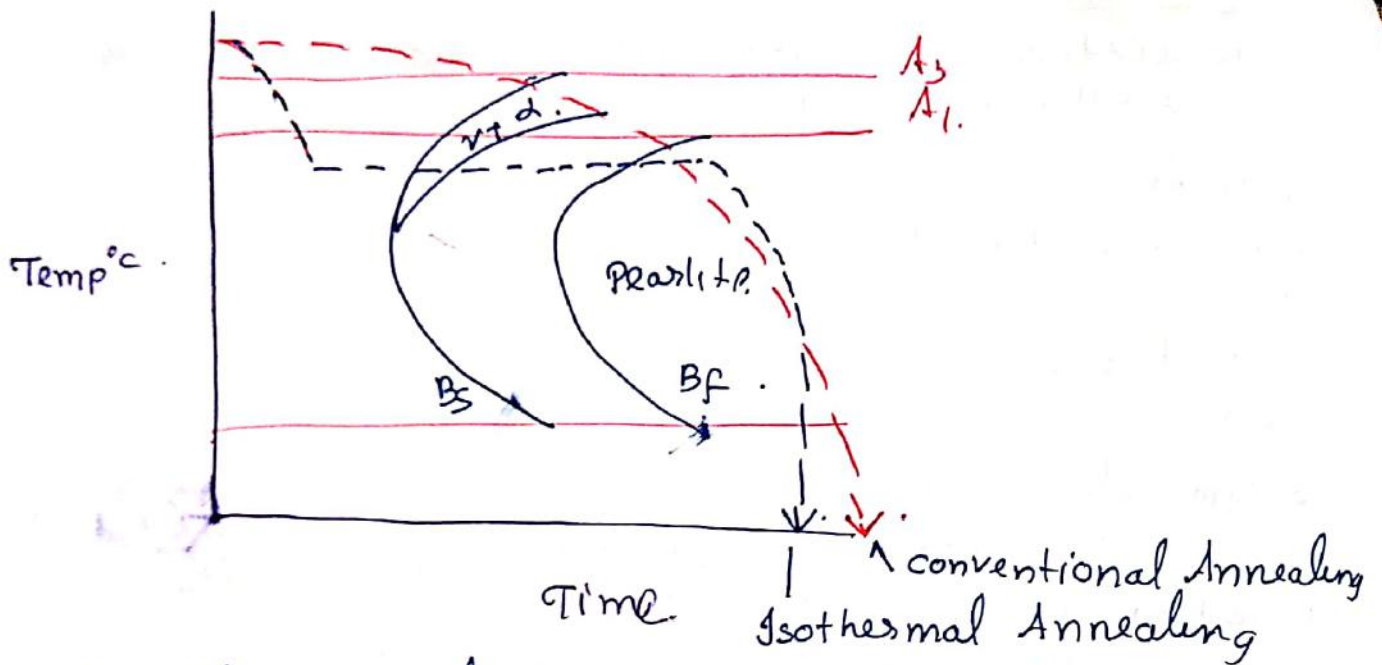 A3
A1.
γ+α.
Temp°C.
Pearlite.
Bs
Bf.
Time.
conventional Annealing
Isothermal Annealing